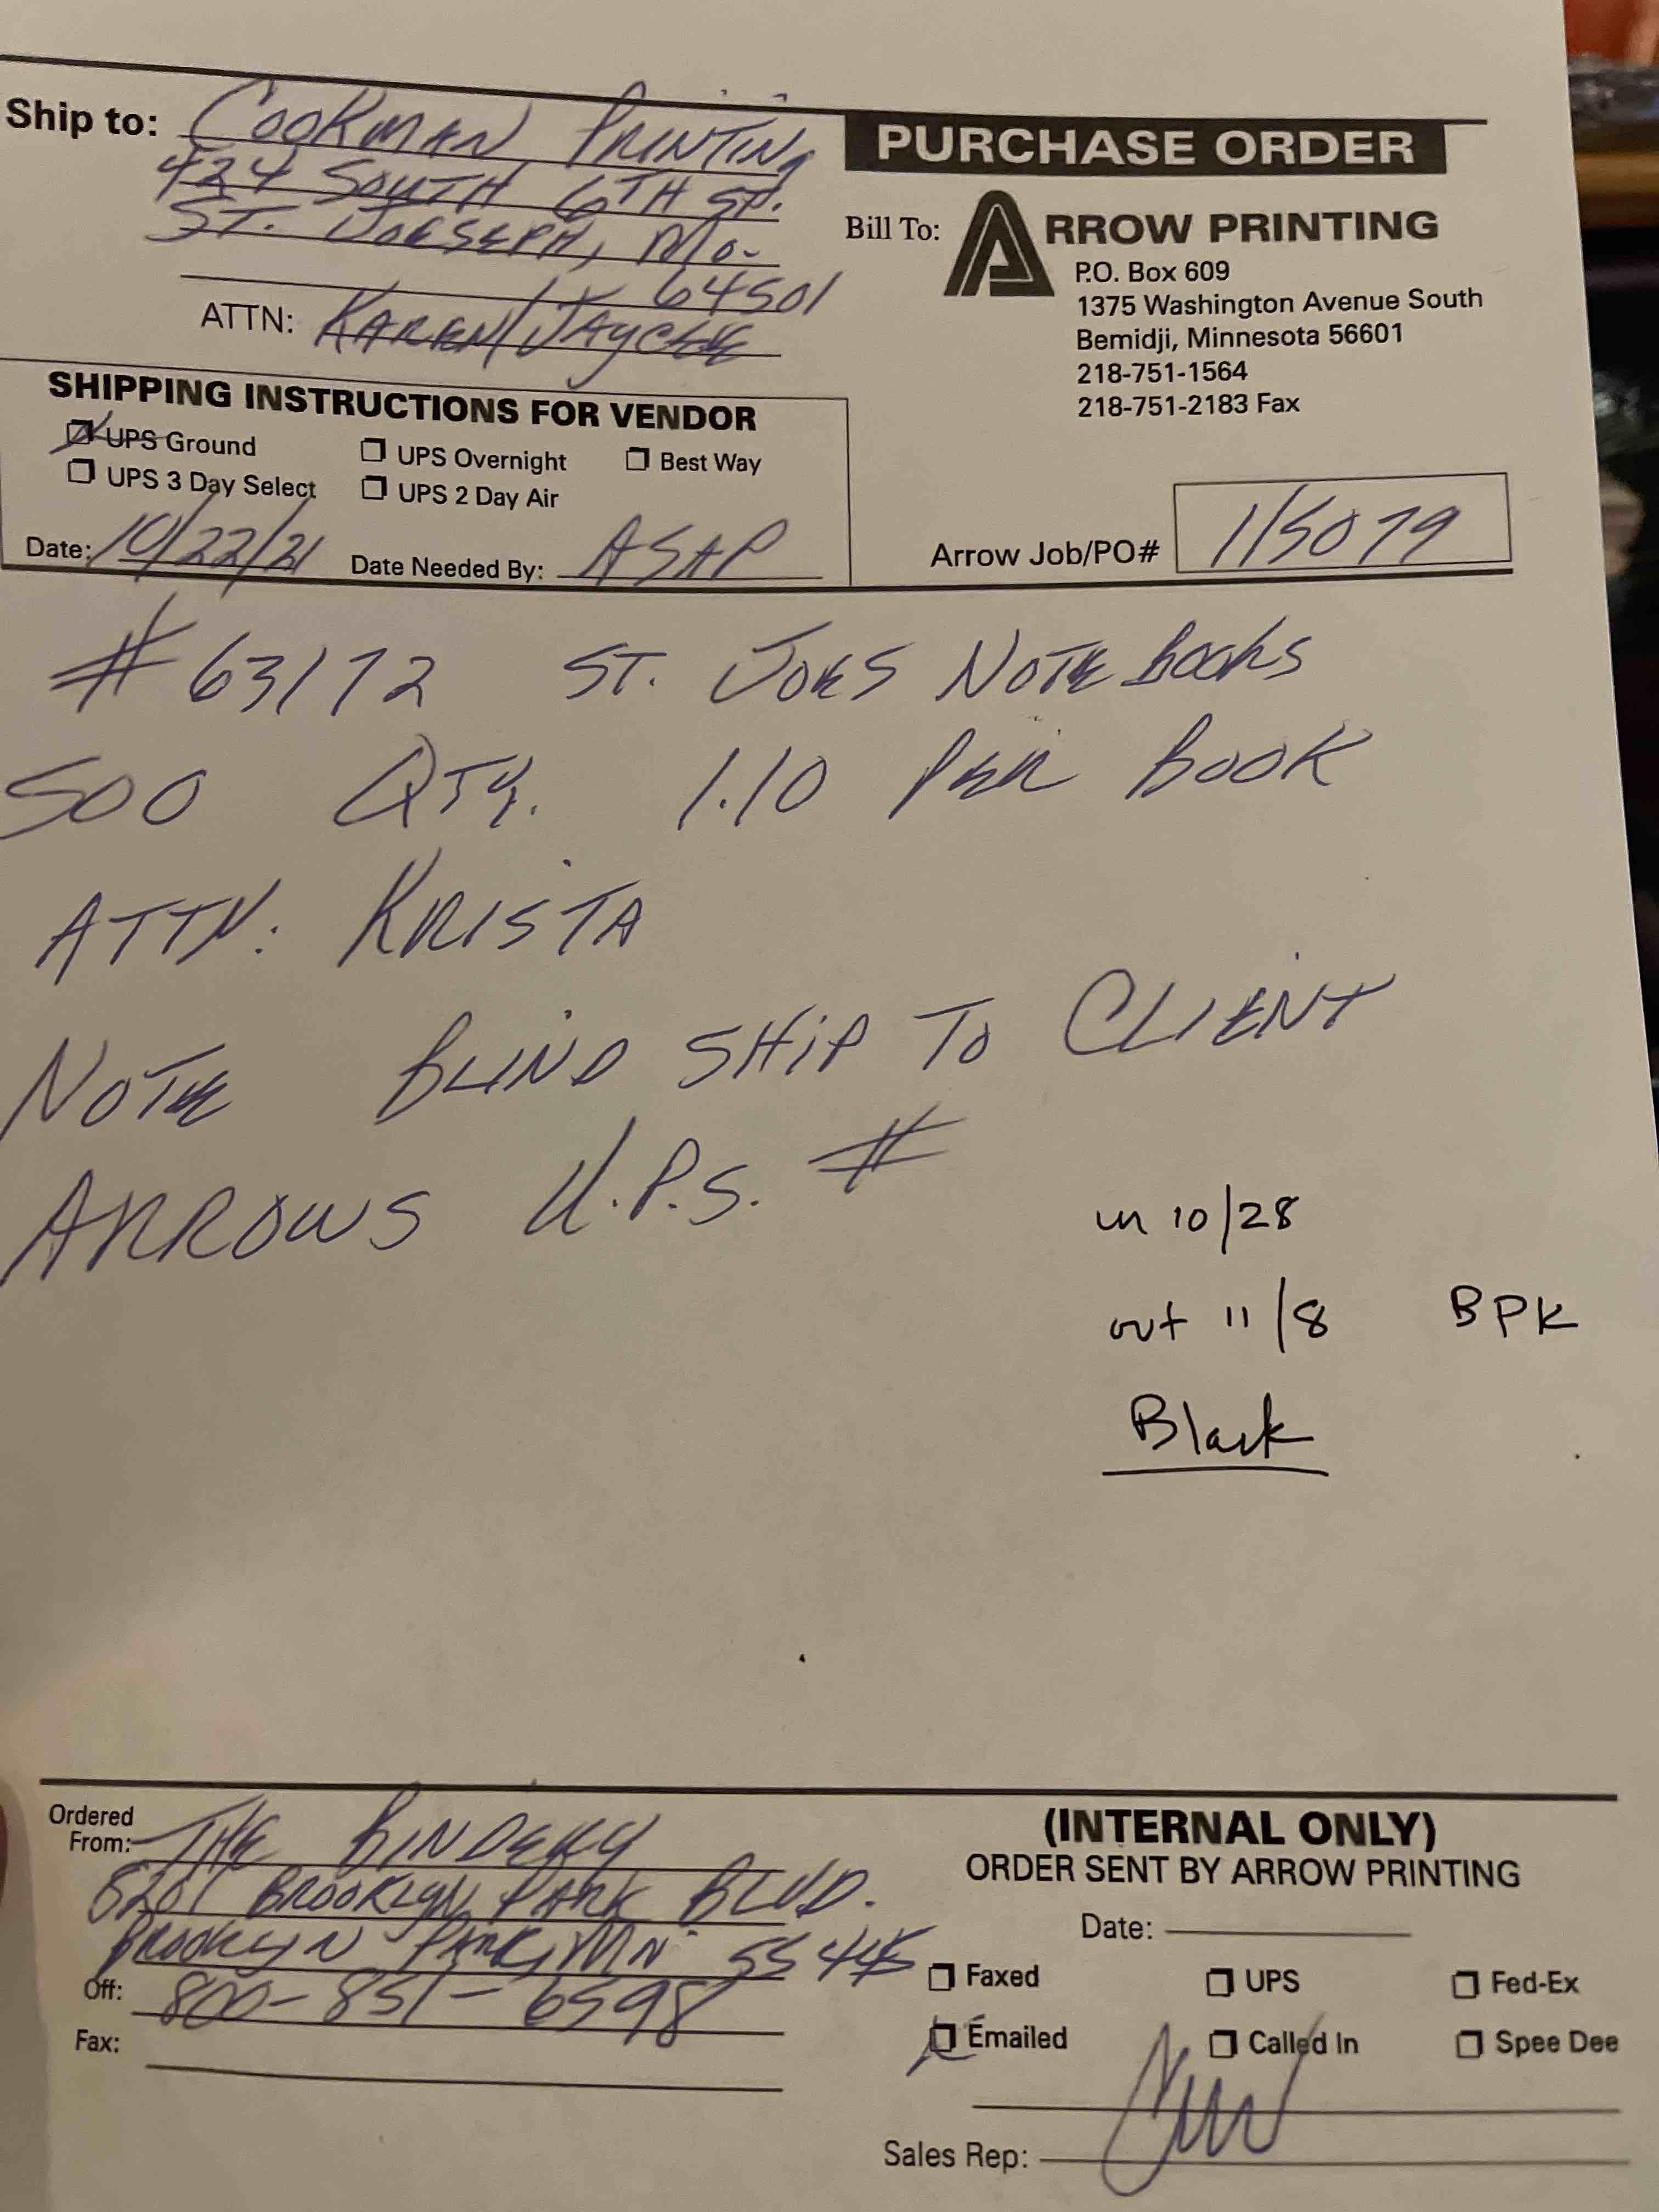 Ship to: COOKMAN PRINTING
424 SOUTH 6TH ST.
ST. JOESEPH, MO.
64501
ATTN: KAREN/JAYCEE
PURCHASE ORDER
Bill To: ARROW PRINTING
P.O. Box 609
1375 Washington Avenue South
Bemidji, Minnesota 56601
218-751-1564
218-751-2183 Fax
SHIPPING INSTRUCTIONS FOR VENDOR
UPS Ground UPS Overnight Best Way
UPS 3 Day Select UPS 2 Day Air
Date: 10/22/21 Date Needed By: ASAP
Arrow Job/PO# 115079
# 63172 ST. JOES NOTE BOOKS
500 QTY. 1.10 PER BOOK
ATTN: KRISTA
NOTE BLIND SHIP TO CLIENT
ARROWS U.P.S. #
in 10/28
out 11/8 BPK
Black
Ordered
From: THE BINDERY
8201 BROOKLYN PARK BLVD.
BROOKLYN PARK, MN 55445
Off: 800-851-6598
Fax:
(INTERNAL ONLY)
ORDER SENT BY ARROW PRINTING
Date:
Faxed UPS Fed-Ex
Emailed Called In Spee Dee
Sales Rep: